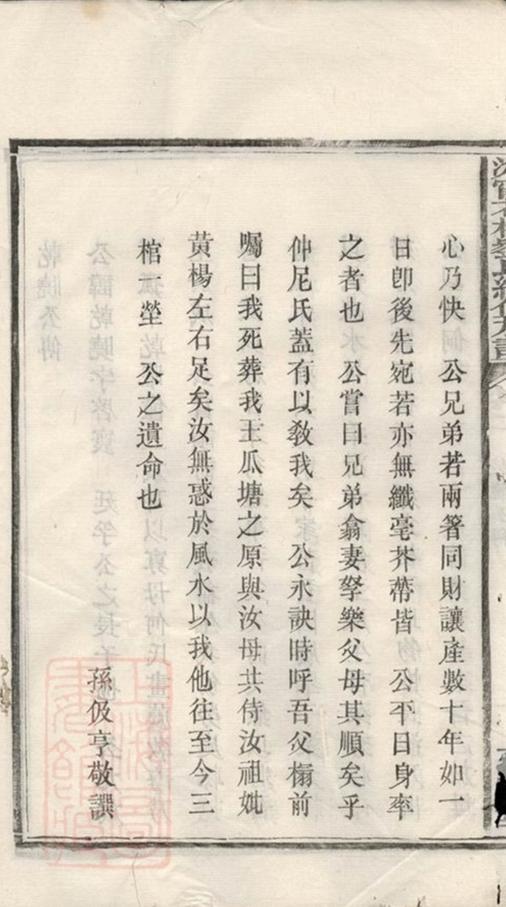 心乃快　公兄弟若兩箸同財讓產數十年如一
日卽後先宛若亦無纖毫芥蔕皆　公平日身率
之者也　公嘗曰兄弟翕妻孥樂父母其順矣乎
仲尼氏蓋有以敎我矣　公永訣時呼吾父榻前
囑曰我死葬我王瓜塘之原與汝母共侍汝祖妣
黃楊左右足矣汝無惑於風水以我他往至今三
棺一塋　公之遺命也
孫伋亨敬譔